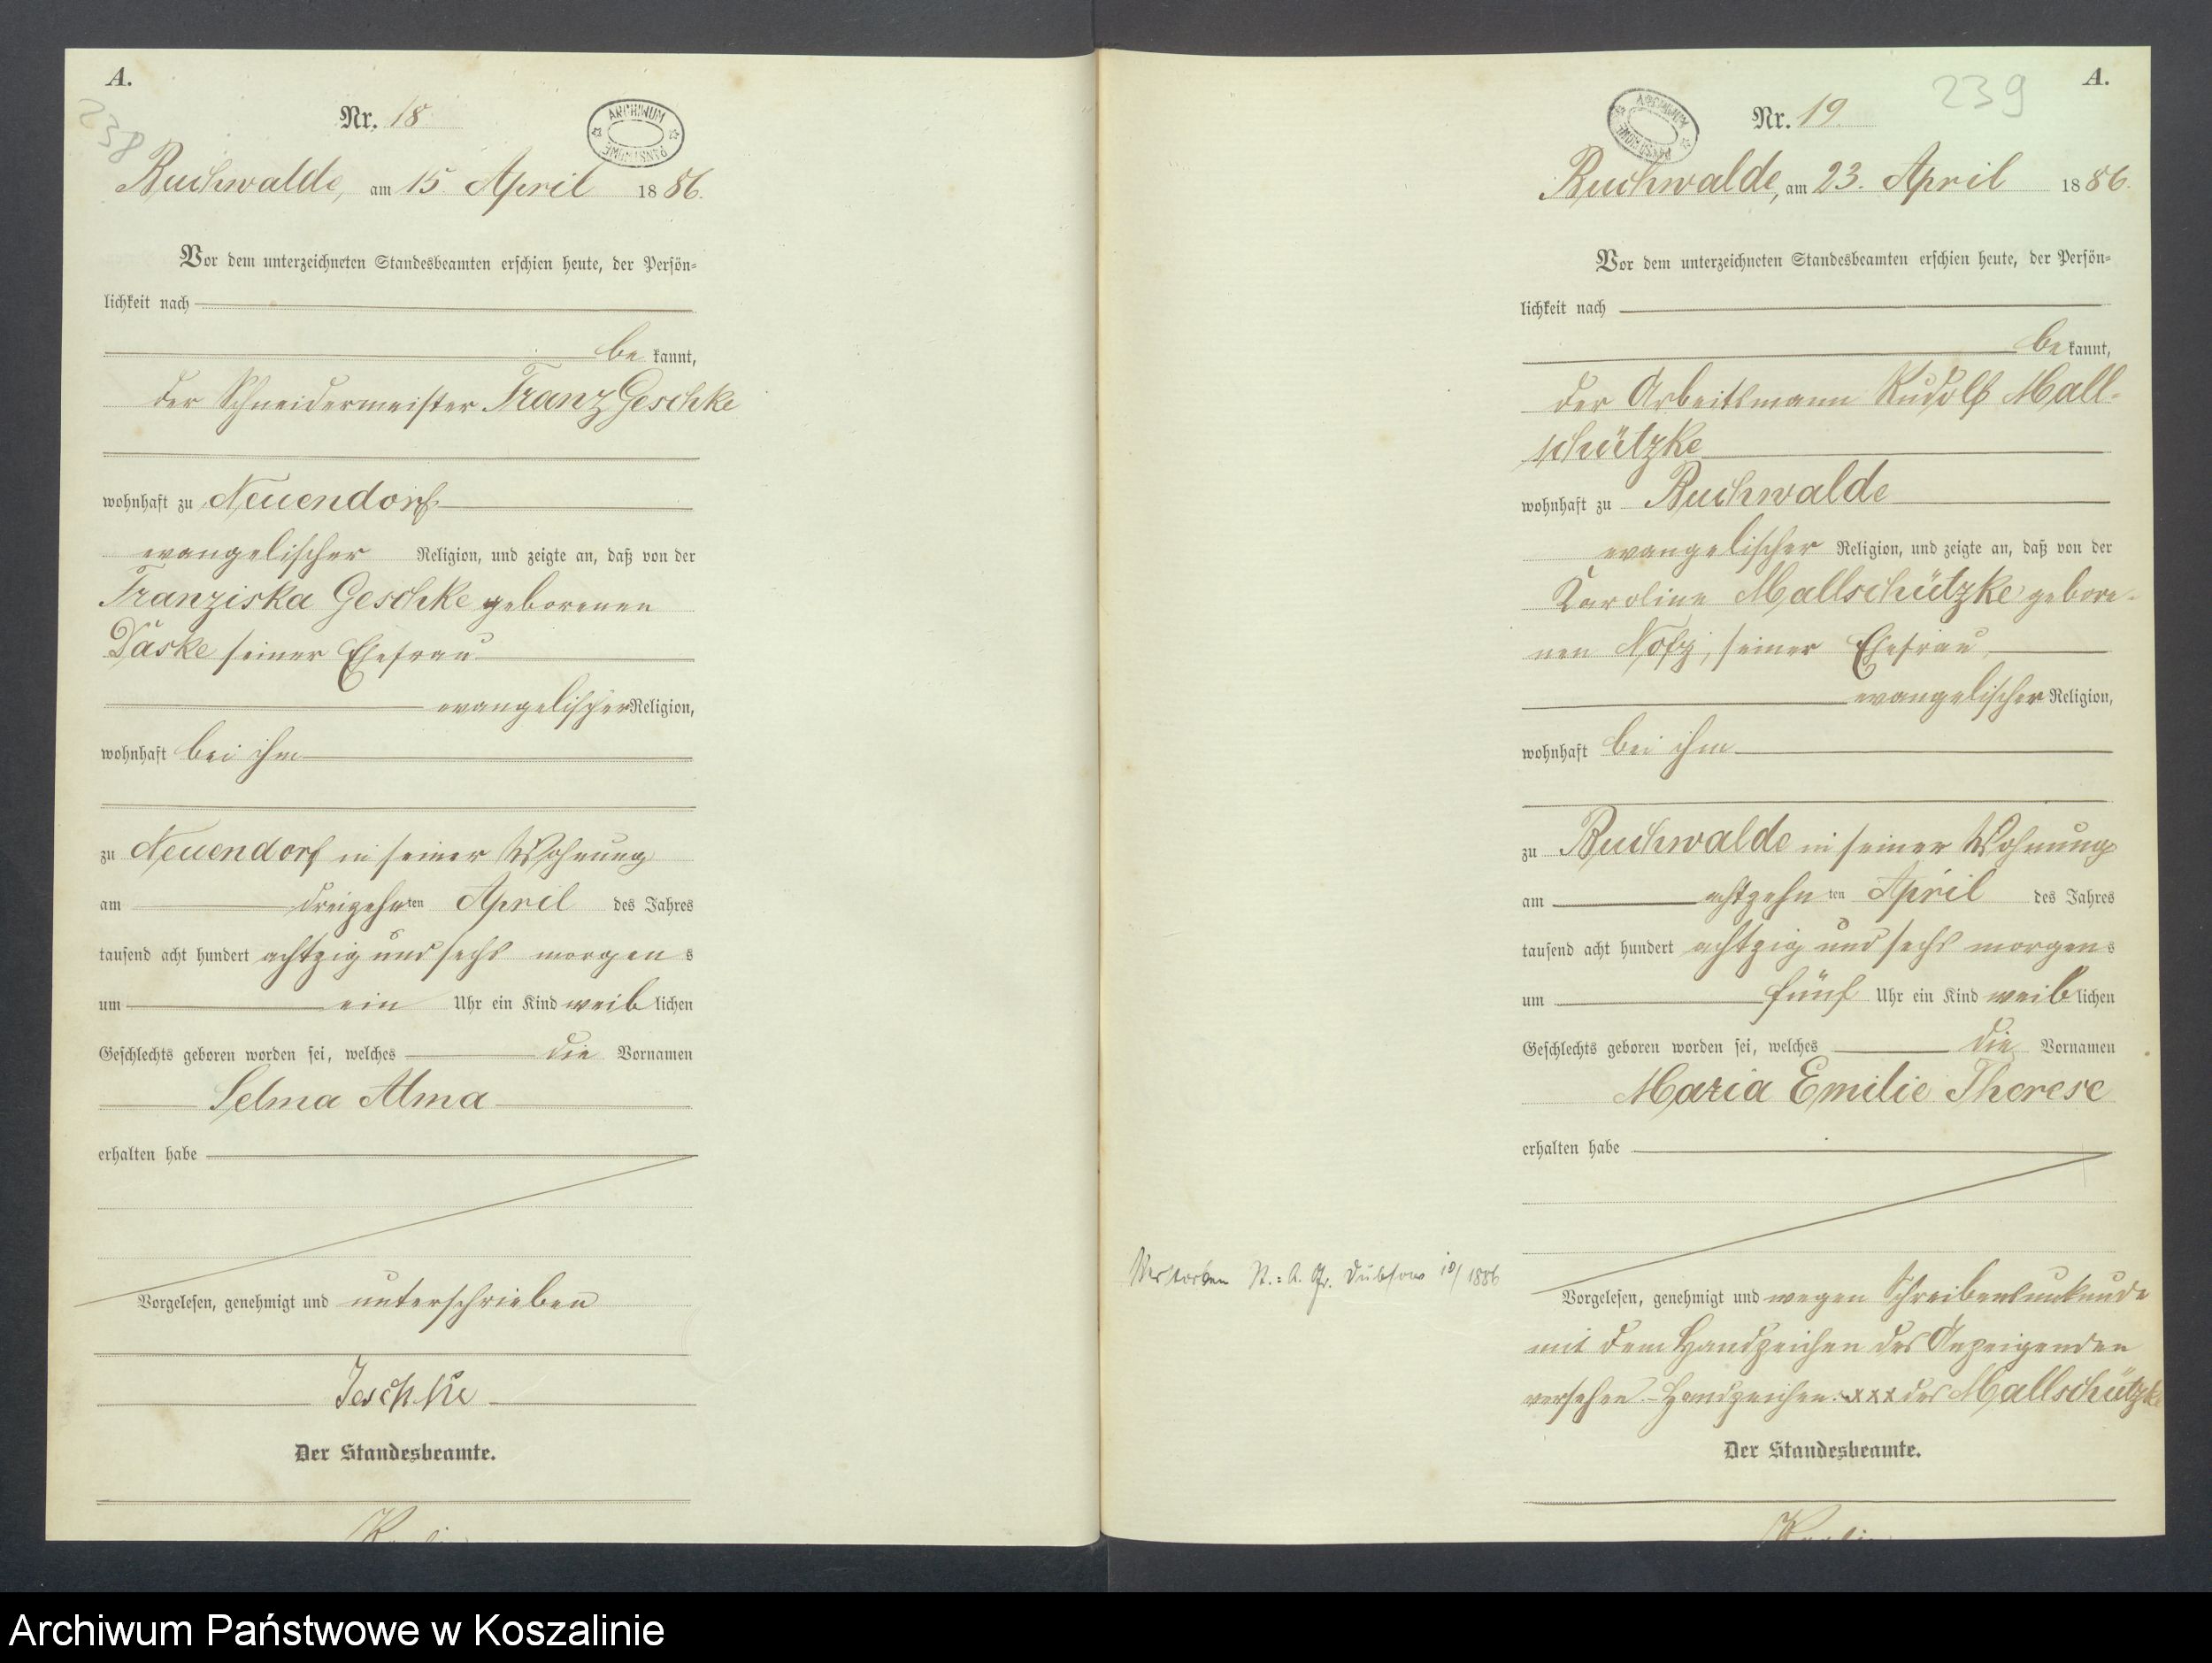 A.
238
Nr. 18
ARCHIWUM PAŃSTWOWE
Buchwalde, am 15. April 1886.
Vor dem unterzeichneten Standesbeamten erschien heute, der Persön-
lichkeit nach
be kannt,
der Schneidermeister Franz Geschke
wohnhaft zu Neuendorf
evangelischer Religion, und zeigte an, daß von der
Franziska Geschke geborenen
Däske seiner Ehefrau
evangelischer Religion,
wohnhaft bei ihm
zu Neuendorf in seiner Wohnung
am dreizehnten April des Jahres
tausend acht hundert achtzig und sechs morgens
um ein Uhr ein Kind weiblichen
Geschlechts geboren worden sei, welches die Vornamen
Selma Alma
erhalten habe
Vorgelesen, genehmigt und unterschrieben
Jeschke
Der Standesbeamte.
A.
239
Nr. 19.
ARCHIWUM PAŃSTWOWE
Buchwalde, am 23. April 1886.
Vor dem unterzeichneten Standesbeamten erschien heute, der Persön-
lichkeit nach
be kannt,
der Arbeitsmann Rudolf Mall-
schützke
wohnhaft zu Buchwalde
evangelischer Religion, und zeigte an, daß von der
Karoline Mallschützke gebore-
nen seiner Ehefrau
evangelischer Religion,
wohnhaft bei ihm
zu Buchwalde in seiner Wohnung
am achtzehnten April des Jahres
tausend acht hundert achtzig und sechs morgens
um fünf Uhr ein Kind weiblichen
Geschlechts geboren worden sei, welches die Vornamen
Maria Emilie Therese
erhalten habe
Verstorben St.=A. Gr. Dübsow 10/1886
Vorgelesen, genehmigt und wegen Schreibensunkunde
mit dem Handzeichen des Anzeigenden
versehen. - Handzeichen: xxx des Mallschützke
Der Standesbeamte.
Archiwum Państwowe w Koszalinie